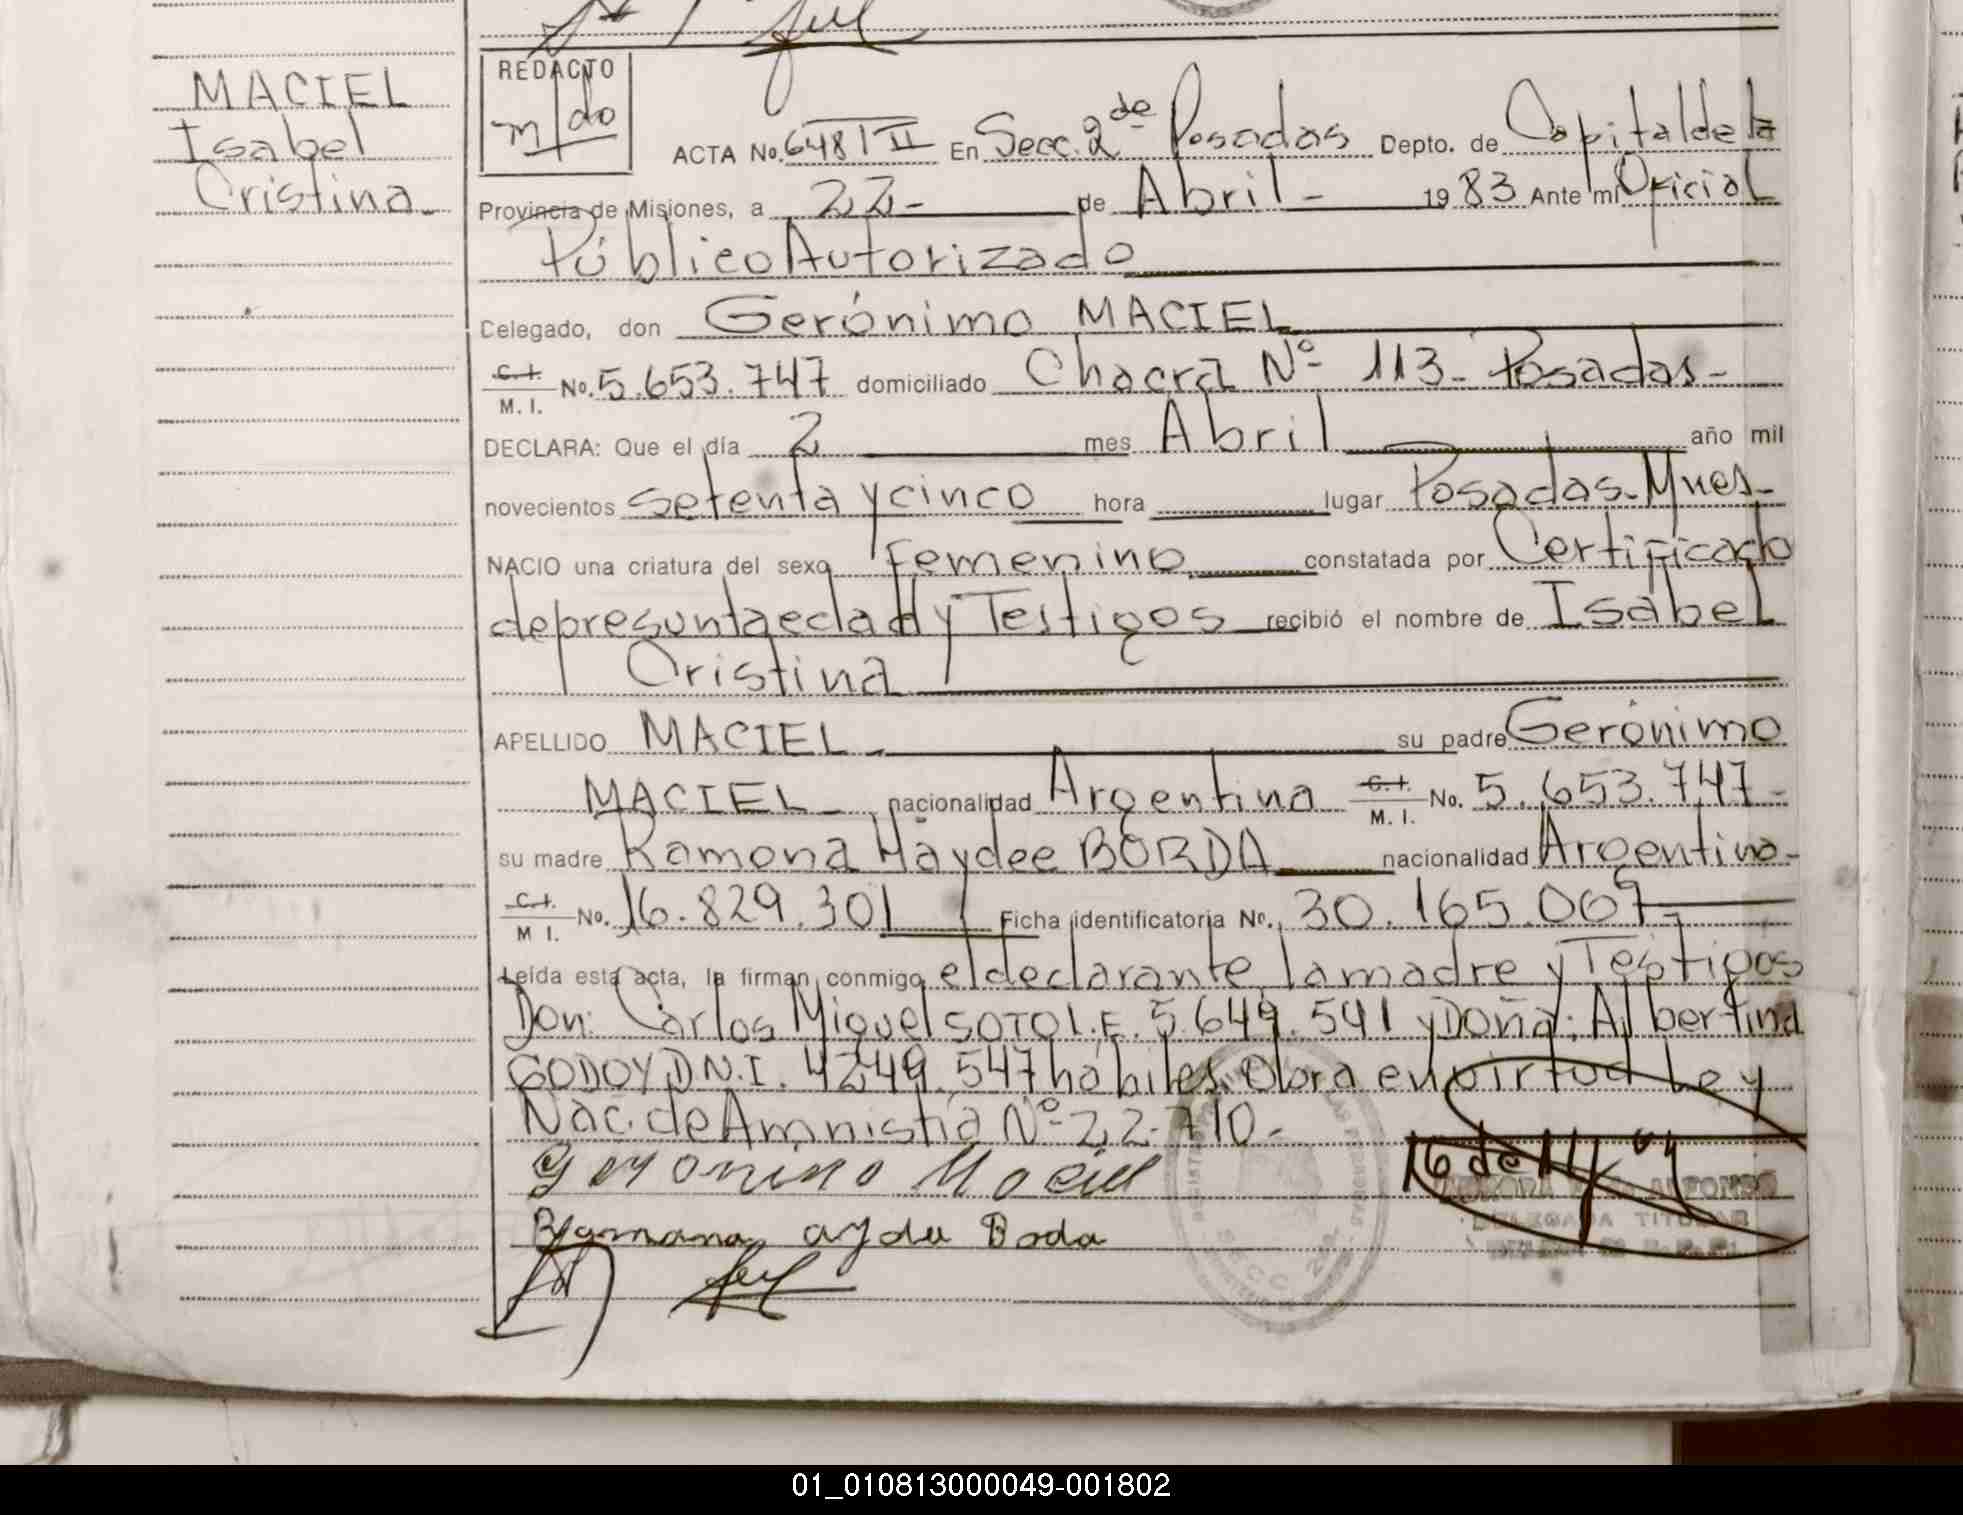 MACIEL
Isabel
Cristina-
REDACTO
m/do
ACTA No. 648 T II En Secc. 2de Posadas Depto. de Capital de la
Provincia de Misiones, a 22- de Abril- 1983 Ante mí Oficial
Público Autorizado
Celegado, don Gerónimo MACIEL
C.I. M. I. No. 5.653.747 domiciliado Chacra Nº 113- Posadas-
DECLARA: Que el día 2 mes Abril año mil
novecientos setenta y cinco hora lugar Posadas- Mnes-
NACIO una criatura del sexo femenino constatada por Certificado
de presunta edad y Testigos recibió el nombre de Isabel
Cristina
APELLIDO MACIEL- su padre Gerónimo
MACIEL- nacionalidad Argentina C.I. M. I. No. 5.653.747-
su madre Ramona Haydee BORDA nacionalidad Argentina-
C.I. M I. No. 16.829.301 Ficha identificatoria No. 30.165.009-
Leída esta acta, la firman conmigo el declarante, la madre y Testigos
Don: Carlos Miguel SOTO L.E. 5.649.541 y Doña: Albertina
GODOY D.N.I. 4.249.547 hábiles. Obra en virtud Ley
Nac. de Amnistia Nº 22.710-
Geronimo Maciel
Rramana aydu Boda
SECC. 2da.
DELEGADA TITULAR
01_010813000049-001802